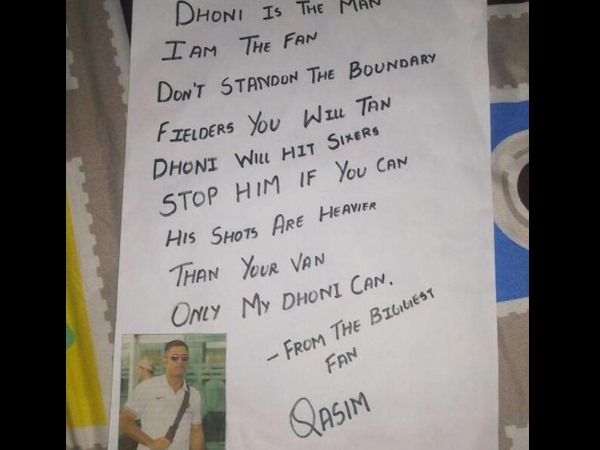 DHONI IS THE MAN
I AM THE FAN
DON'T STANDON THE BOUNDARY
FIELDERS YOU WILL TAN
DHONI WILL HIT SIXERS
STOP HIM IF YOU CAN
HIS SHOTS ARE HEAVIER
THAN YOUR VAN
ONLY MY DHONI CAN.
- FROM THE BIGGEST
FAN
QASIM